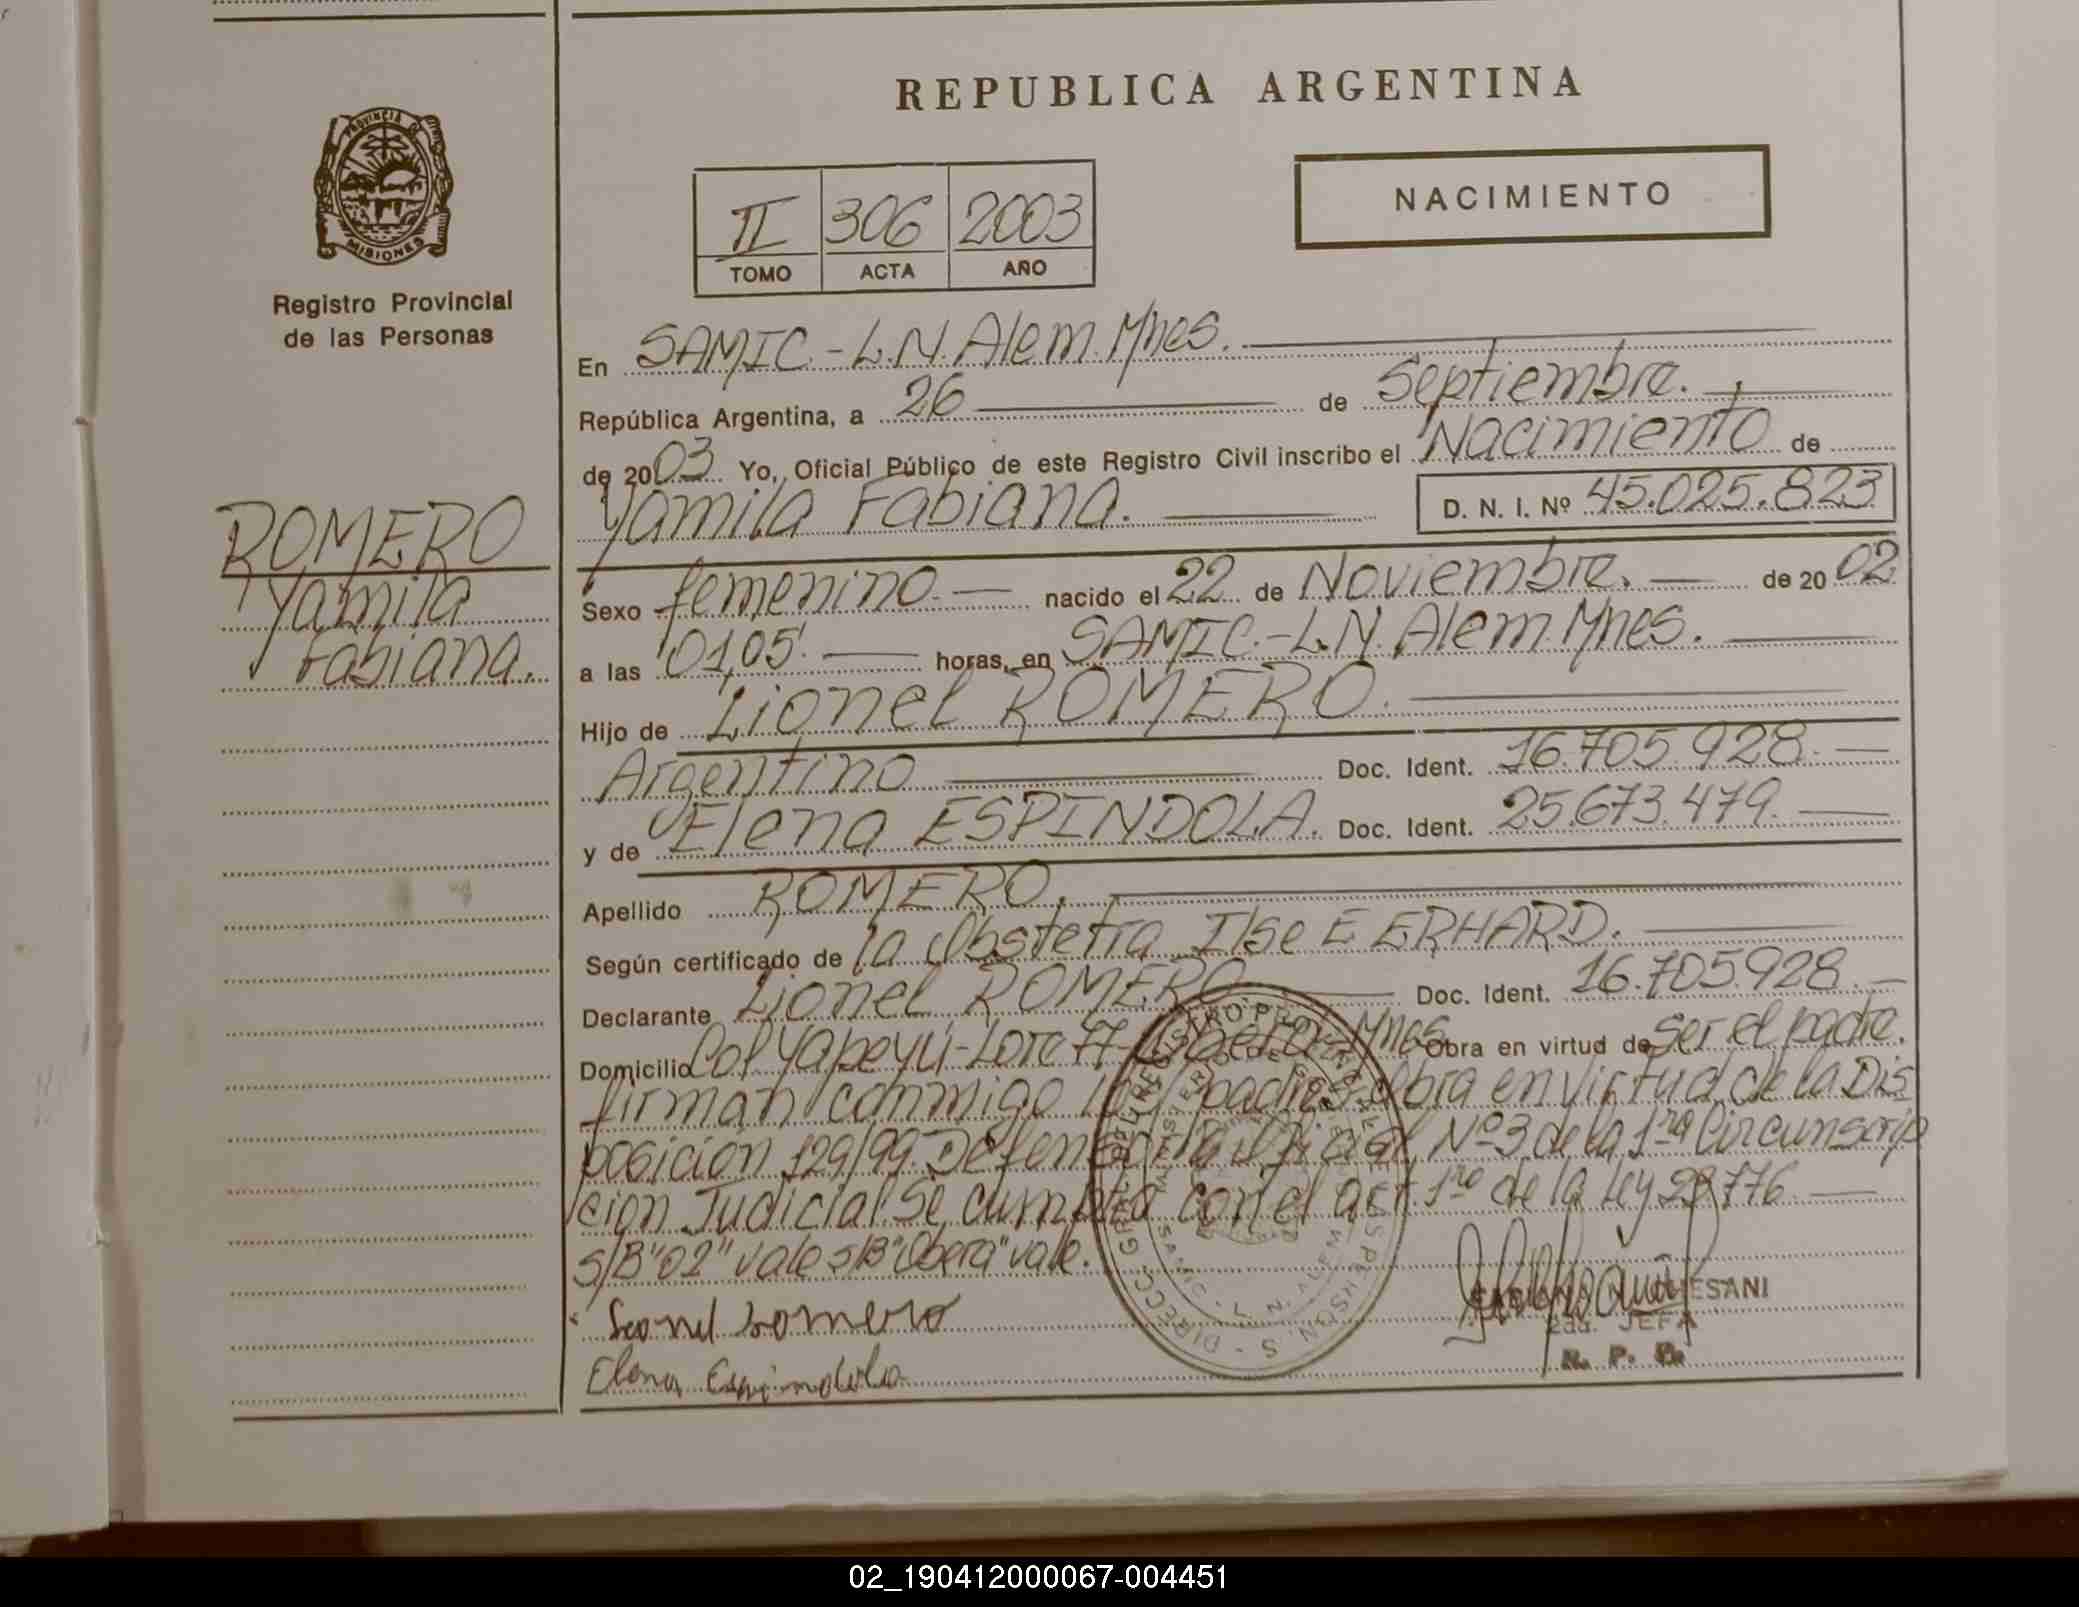 REPUBLICA ARGENTINA
PROVINCIA DE
MISIONES
Registro Provincial
de las Personas
NACIMIENTO
II 306 2003
TOMO ACTA AÑO
En SAMIC.-L.N.Alem.Mnes.
República Argentina, a 26 de Septiembre.
de 2003 Yo, Oficial Público de este Registro Civil inscribo el Nacimiento de
Yamila Fabiana. D. N. I. Nº 45.025.823
ROMERO
Yamila
Fabiana.
Sexo femenino.- nacido el 22 de Noviembre. de 2002
a las 01,05. horas, en SAMIC.-L.N.Alem.Mnes.
Hijo de Lionel ROMERO.
Argentino Doc. Ident. 16.705.928.
y de Elena ESPINDOLA. Doc. Ident. 25.673.479.
Apellido ROMERO.
Según certificado de la Obstetra Ilse E ERHARD.
Declarante Lionel ROMERO Doc. Ident. 16.705.928.
Domicilio Col Yapeyú-Lote 77-Oberá Mnes Obra en virtud de ser el padre.
firman conmigo los padres Obra en virtud de la Dis
posición 129/99. Defensoría Oficial Nº3 de la 1ra Circunscrip
ción Judicial. Se cumple con el art 1ro de la Ley
S/B"02" vale S/B"Oberá" vale.
Leonel Romero
Elena Espindola
2da. JEFA
R. P. P.
SAMIC - L. N. ALEM
02_190412000067-004451